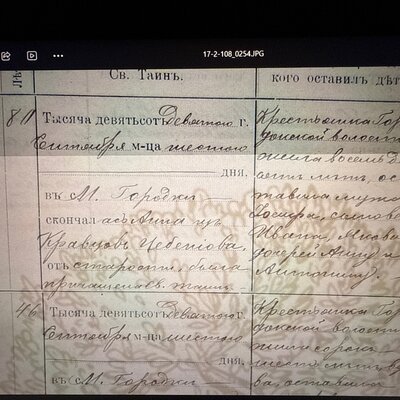 17-2-108_0254.JPG
Св. Таинъ.
кого оставилъ дѣт
Лѣ
80
Тысяча девятьсотъ Девятаго г.
Сентября м-ца шестого
дня.
въ М. Городки
скончал ась Анна изъ
Кравцовъ
отъ старости, была
Крестьянка Гор
донской волости
жила восемь д
лѣтъ, ос
тавила мужа
Ивана,
дочерей Анну и
Антонину.
46
Тысяча девятьсотъ Девятаго г.
Сентября м-ца шестого
дня.
въ М. Городки
Крестьянка Гор
донской волости
жила сорокъ
шесть лѣтъ, в
ва, оставила